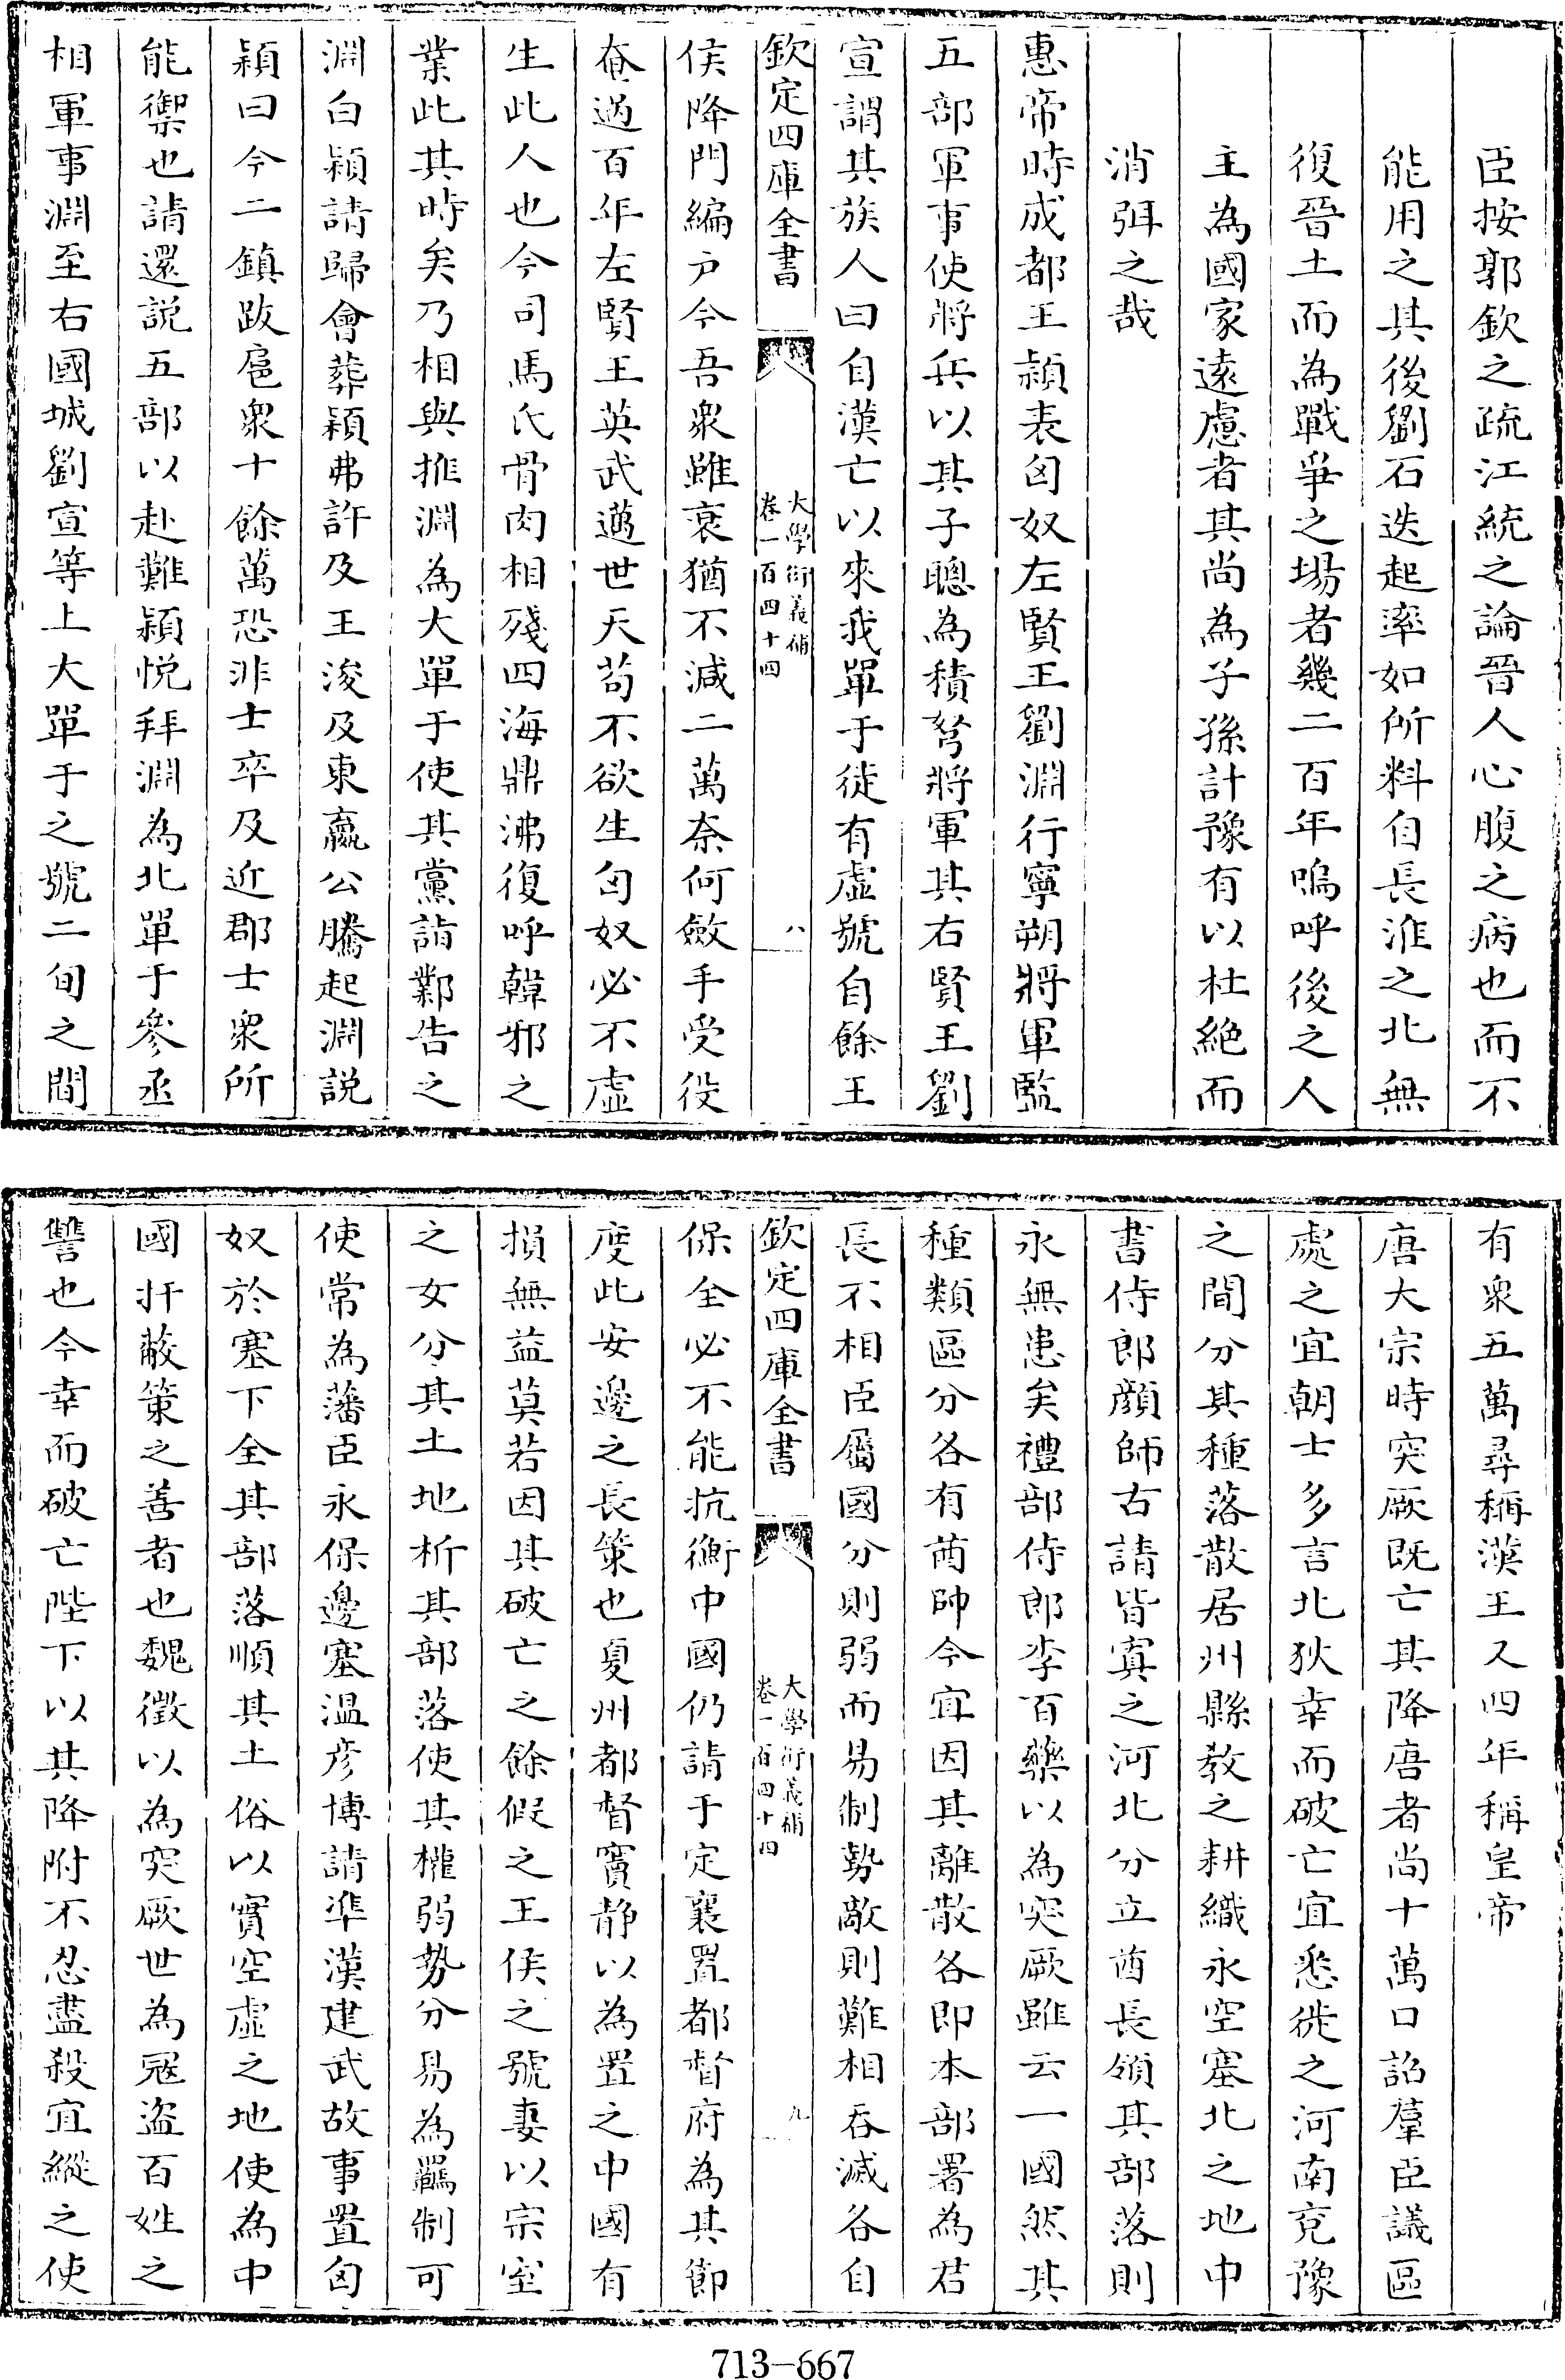 臣按郭欽之疏江統之論晉人心腹之病也而不
能用之其後劉石迭起率如所料自長淮之北無
復晉土而為戰爭之場者幾二百年嗚呼後之人
主為國家遠慮者其尚為子孫計豫有以杜絕而
消弭之哉
惠帝時成都王穎表匈奴左賢王劉淵行寧朔將軍監
五部軍事使將兵以其子聰為積弩將軍其右賢王劉
宣謂其族人曰自漢亡以來我單于徒有虛號自餘王
欽定四庫全書
大學衍義補
卷一百四十四
八
侯降門編戶今吾衆雖衰猶不減二萬奈何斂手受役
奄過百年左賢王英武邁世天苟不欲生匈奴必不虛
生此人也今司馬氏骨肉相殘四海鼎沸復呼韓邪之
業此其時矣乃相與推淵為大單于使其黨詣鄴告之
淵白穎請歸會葬穎弗許及王浚及東嬴公騰起淵説
穎曰今二鎮跋扈衆十餘萬恐非士卒及近郡士衆所
能禦也請還説五部以赴難穎悅拜淵為北單于參丞
相軍事淵至右國城劉宣等上大單于之號二旬之間
有衆五萬尋稱漢王又四年稱皇帝
唐大宗時突厥既亡其降唐者尚十萬口詔羣臣議區
處之宜朝士多言北狄幸而破亡宜悉徙之河南兗豫
之間分其種落散居州縣教之耕織永空塞北之地中
書侍郎顔師古請皆寘之河北分立酋長領其部落則
永無患矣禮部侍郎李百藥以為突厥雖云一國然其
種類區分各有酋帥今宜因其離散各即本部署為君
長不相臣屬國分則弱而易制勢敵則難相吞滅各自
欽定四庫全書
大學衍義補
卷一百四十四
九
保全必不能抗衡中國仍請于定襄置都督府為其節
度此安邊之長策也夏州都督竇静以為置之中國有
損無益莫若因其破亡之餘假之王侯之號妻以宗室
之女分其土地析其部落使其權弱勢分易為羈制可
使常為藩臣永保邊塞温彦博請準漢建武故事置匈
奴於塞下全其部落順其土俗以實空虛之地使為中
國扞蔽策之善者也魏徵以為突厥世為冦盗百姓之
讐也今幸而破亡陛下以其降附不忍盡殺宜縱之使
713-667